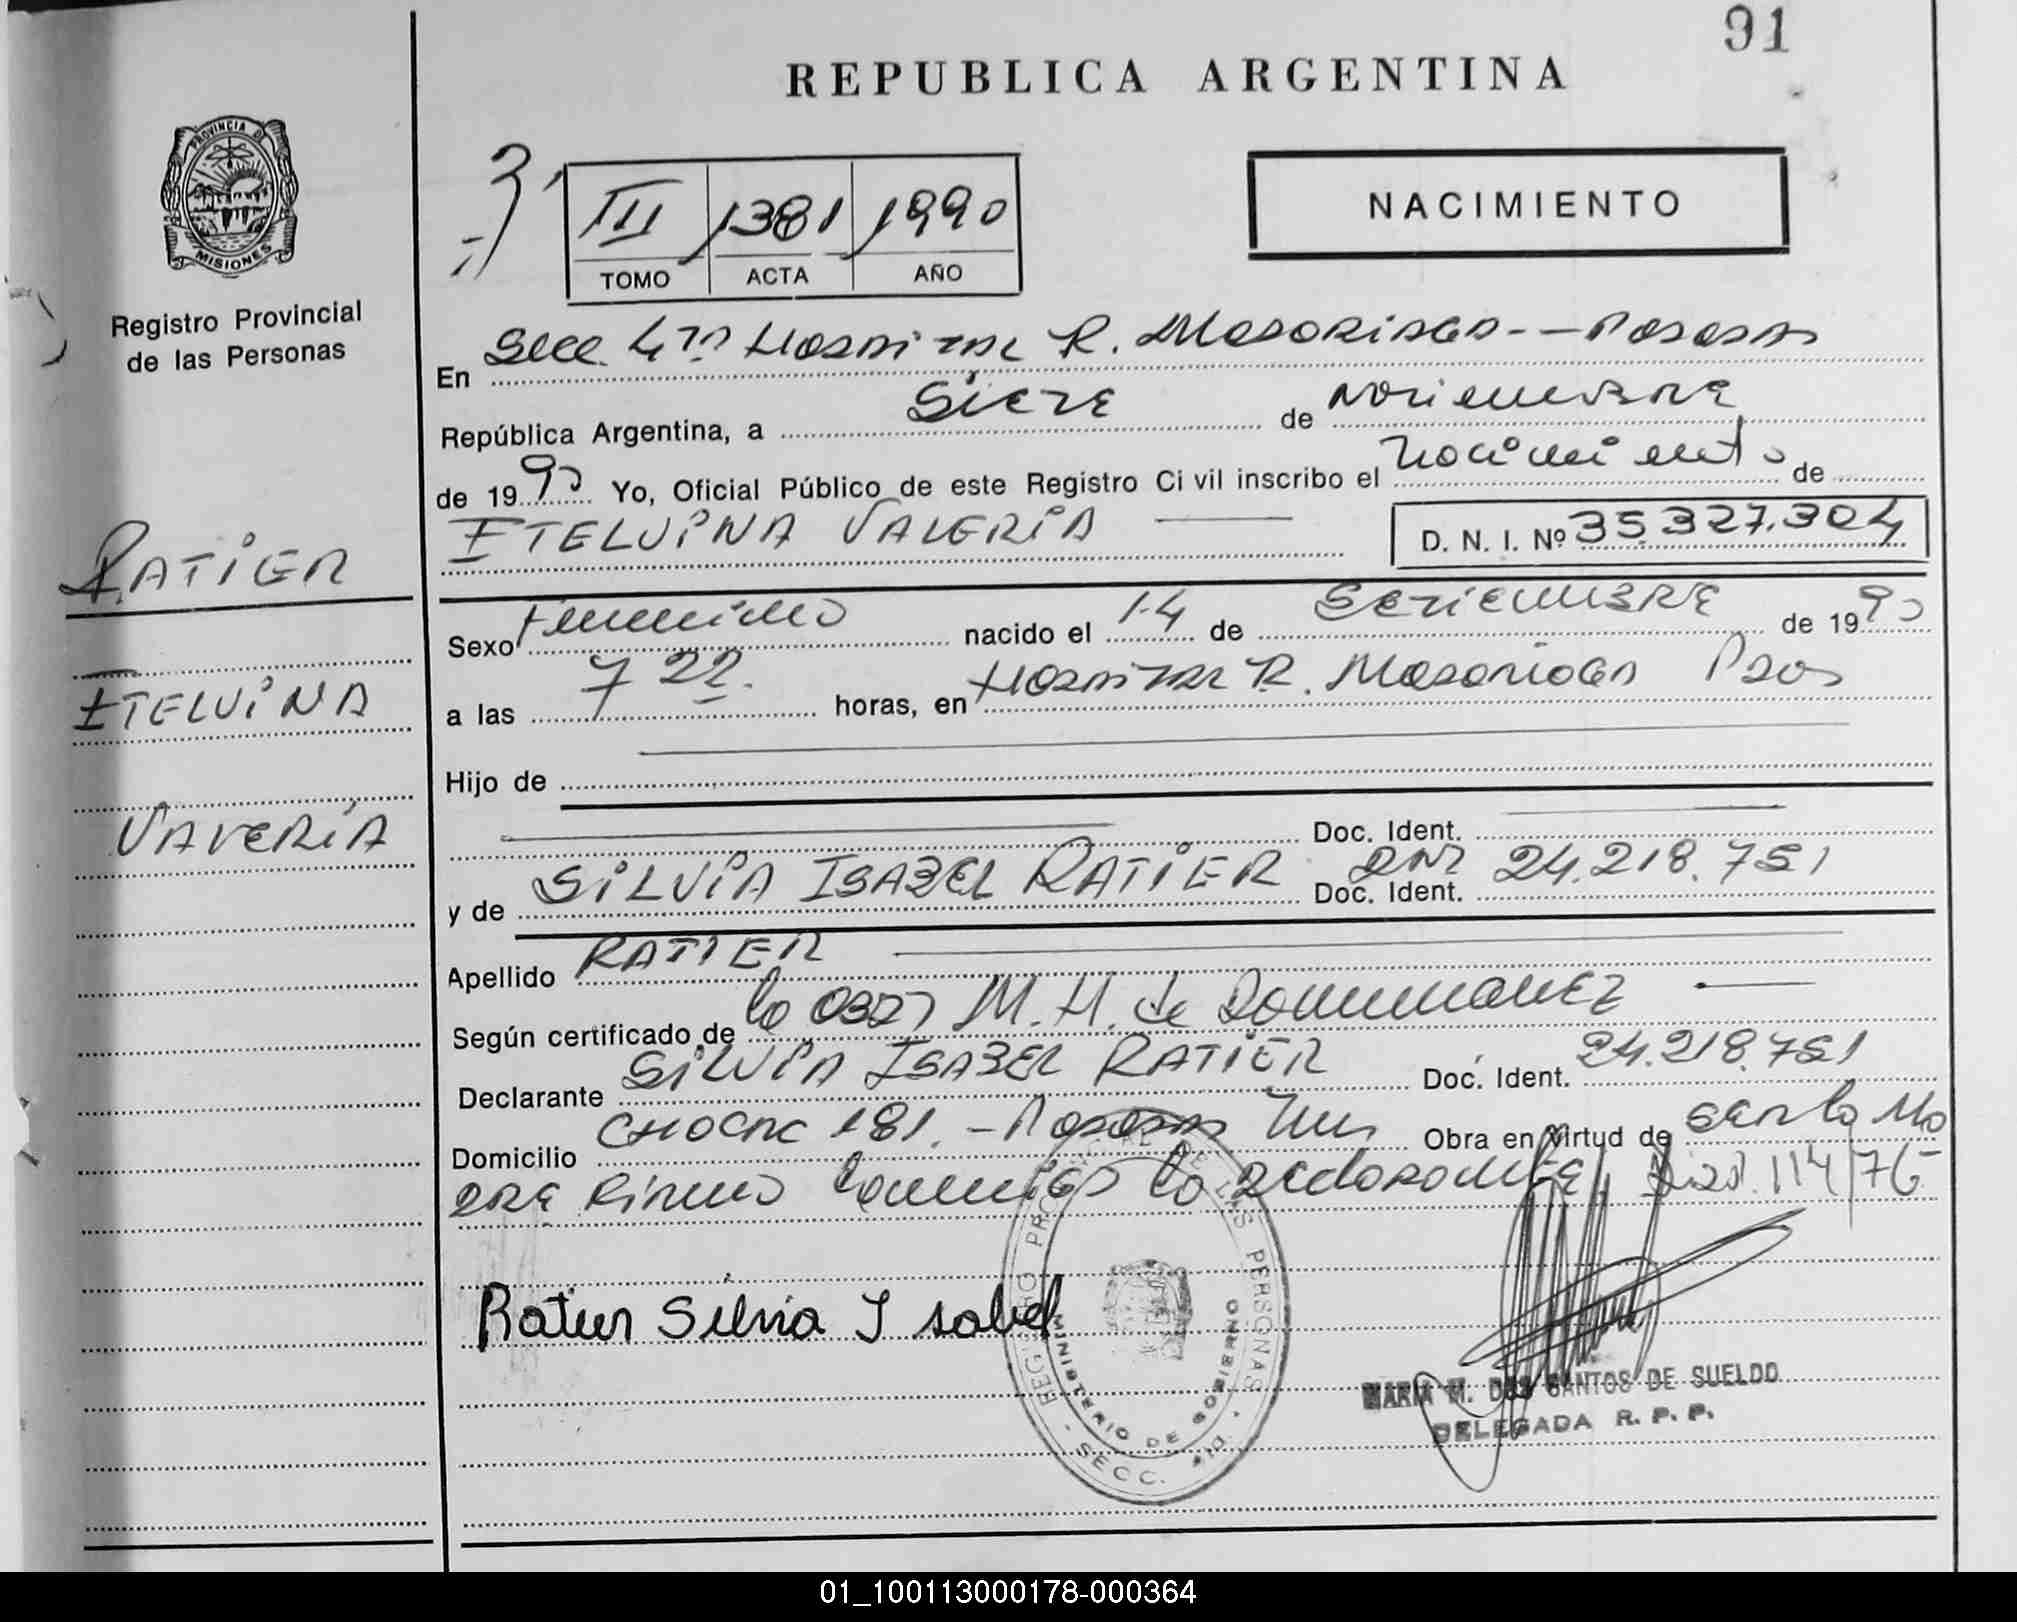 91
REPUBLICA ARGENTINA
PROVINCIA DE MISIONES
Registro Provincial
de las Personas
III 1381 1990
TOMO ACTA AÑO
NACIMIENTO
En Secc 4ta Hospital R. Madariaga -- Posadas
República Argentina, a Siete de Noviembre
de 1990 Yo, Oficial Público de este Registro Civil inscribo el nacimiento de
ETELVINA VALERIA
D. N. I. Nº 35.327.304
RATIER
ETELVINA
VALERIA
Sexo Femenino nacido el 14 de Setiembre de 1990
a las 7 22 horas, en Hospital R. Madariaga Pdas
Hijo de
Doc. Ident.
y de SILVIA ISABEL RATIER Doc. Ident. DNI 24.218.751
Apellido RATIER
Según certificado de la M. H. de
Declarante SILVIA ISABEL RATIER Doc. Ident. 24.218.751
Domicilio 181. - Posadas Mnes Obra en virtud de ser la Ma
dre Firma la declarante 114/76
Ratier Silvia Isabel
REGISTRO PROVINCIAL DE LAS PERSONAS
MINISTERIO DE GOBIERNO
SECC.
MARIA M. DOS SANTOS DE SUELDO
DELEGADA R. P. P.
01_100113000178-000364